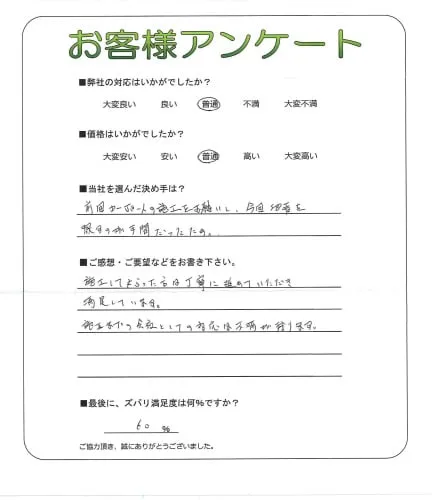 お客様アンケート
■弊社の対応はいかがでしたか？
大変良い 良い 普通 不満 大変不満
■価格はいかがでしたか？
大変安い 安い 普通 高い 大変高い
■当社を選んだ決め手は？
前回カーポートの施工をお願いし、今回
手間だったため。
■ご感想・ご要望などをお書き下さい。
施工してもらった方は丁寧に進めていただき
満足しています。
施工までの会社としての対応は不満が残ります。
■最後に、ズバリ満足度は何％ですか？
60 ％
ご協力頂き、誠にありがとうございました。